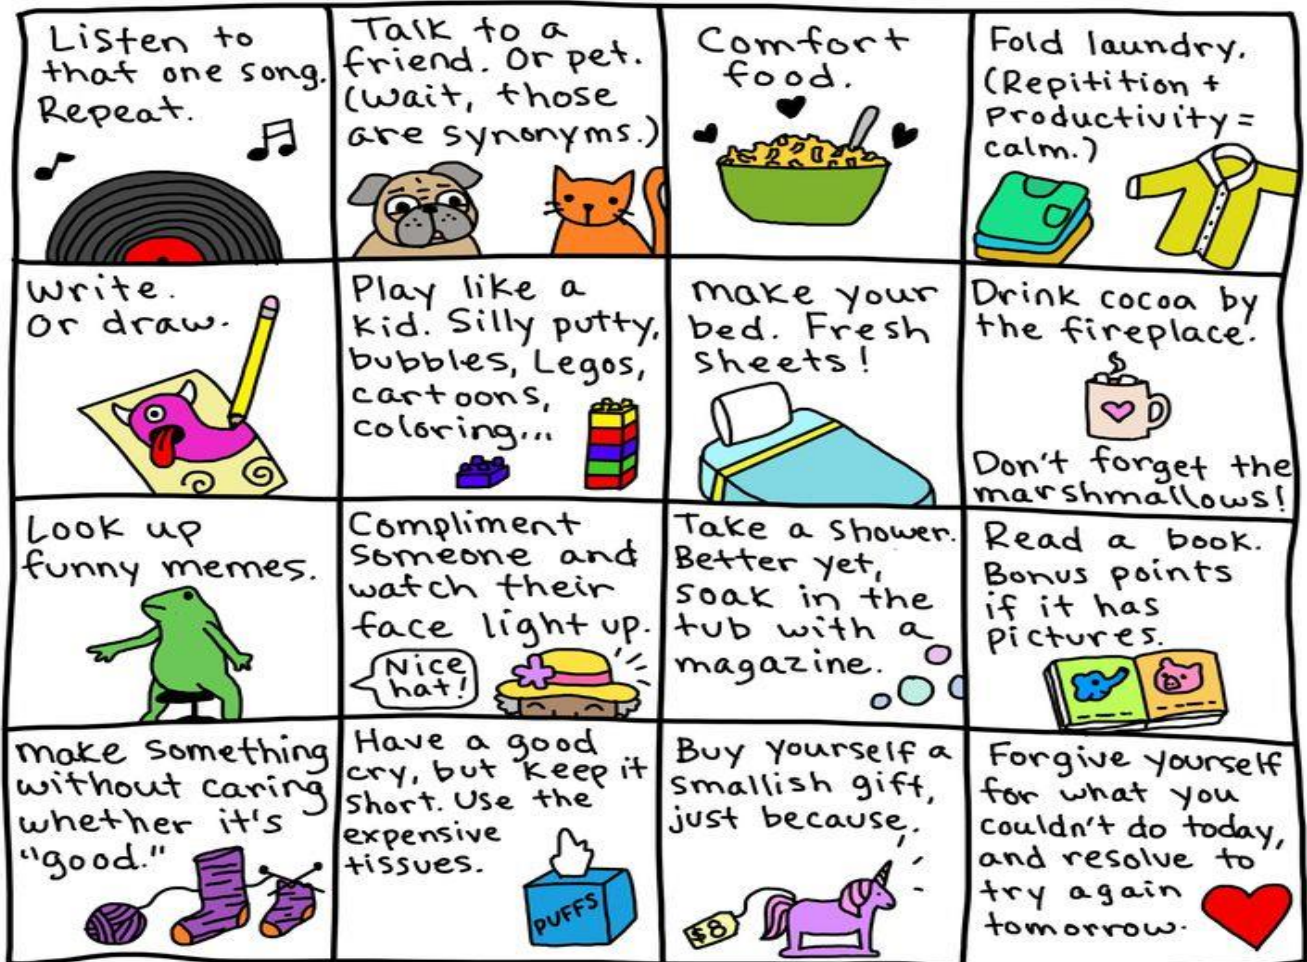 Listen to
that one song.
Repeat.
Talk to a
friend. Or pet.
(Wait, those
are synonyms.)
Comfort
food.
Fold laundry.
(Repitition +
Productivity =
calm.)
Write.
Or draw.
Play like a
kid. Silly putty,
bubbles, Legos,
cartoons,
coloring...
make your
bed. Fresh
sheets!
Drink cocoa by
the fireplace.
Don't forget the
marshmallows!
Look up
funny memes.
Compliment
someone and
watch their
face light up.
Nice
hat!
Take a shower.
Better yet,
soak in the
tub with a
magazine.
Read a book.
Bonus points
if it has
pictures.
make something
without caring
whether it's
"good."
Have a good
cry, but keep it
short. Use the
expensive
tissues.
PUFFS
Buy yourself a
smallish gift,
just because.
$8
Forgive yourself
for what you
couldn't do today,
and resolve to
try again
tomorrow.